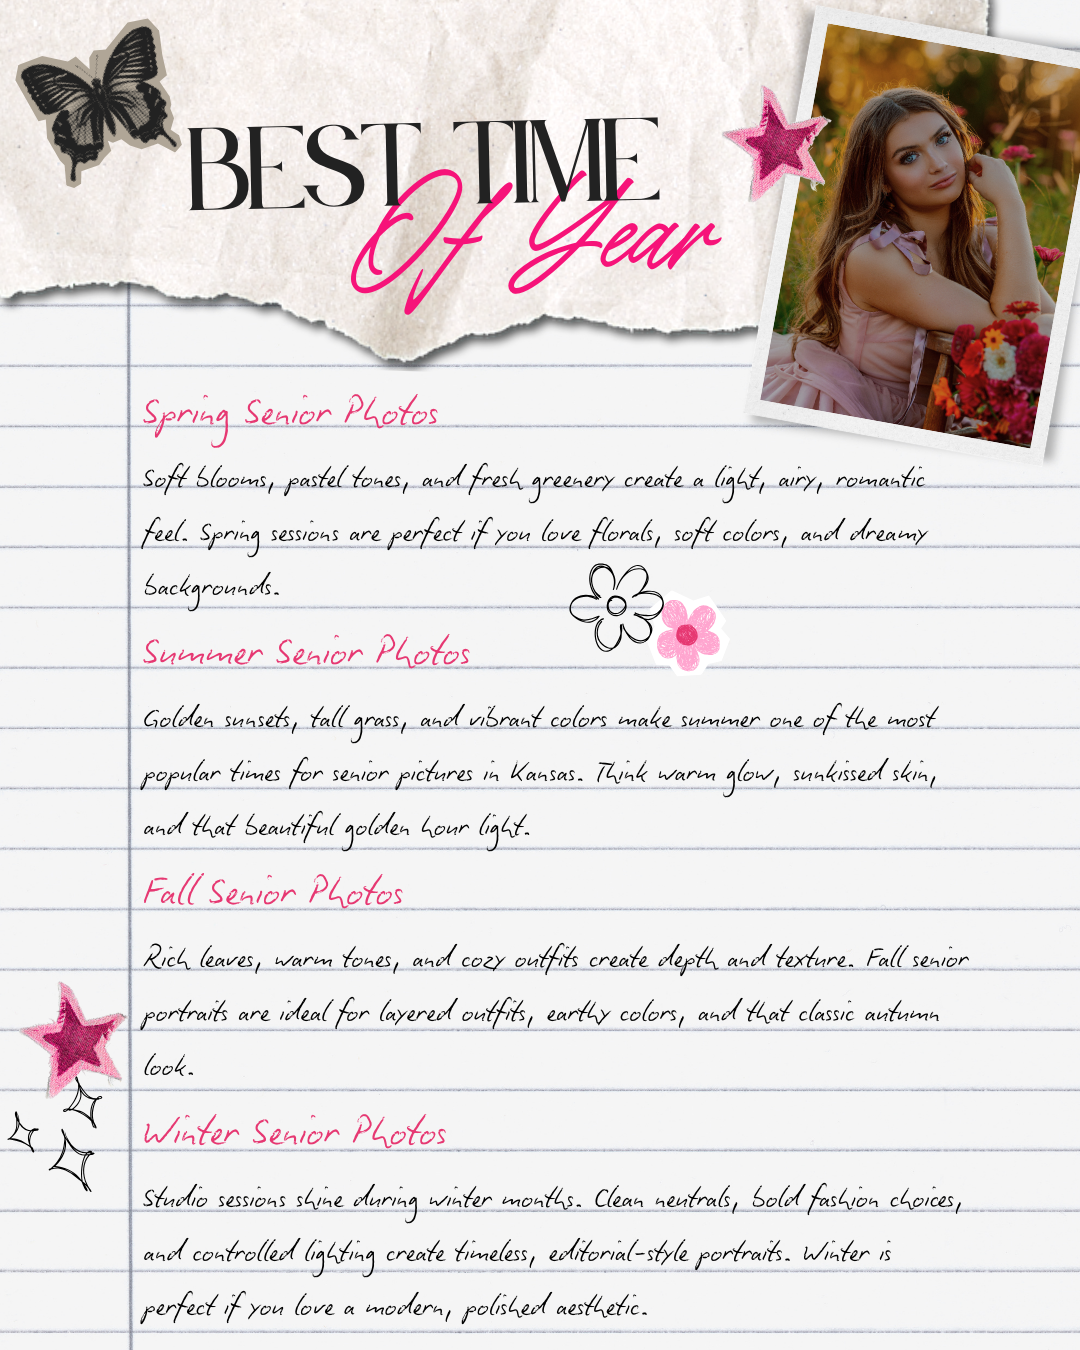 BEST TIME
Of Year
Spring Senior Photos
Soft blooms, pastel tones, and fresh greenery create a light, airy, romantic
feel. Spring sessions are perfect if you love florals, soft colors, and dreamy
backgrounds.
Summer Senior Photos
Golden sunsets, tall grass, and vibrant colors make summer one of the most
popular times for senior pictures in Kansas. Think warm glow, sunkissed skin,
and that beautiful golden hour light.
Fall Senior Photos
Rich leaves, warm tones, and cozy outfits create depth and texture. Fall senior
portraits are ideal for layered outfits, earthy colors, and that classic autumn
look.
Winter Senior Photos
Studio sessions shine during winter months. Clean neutrals, bold fashion choices,
and controlled lighting create timeless, editorial-style portraits. Winter is
perfect if you love a modern, polished aesthetic.